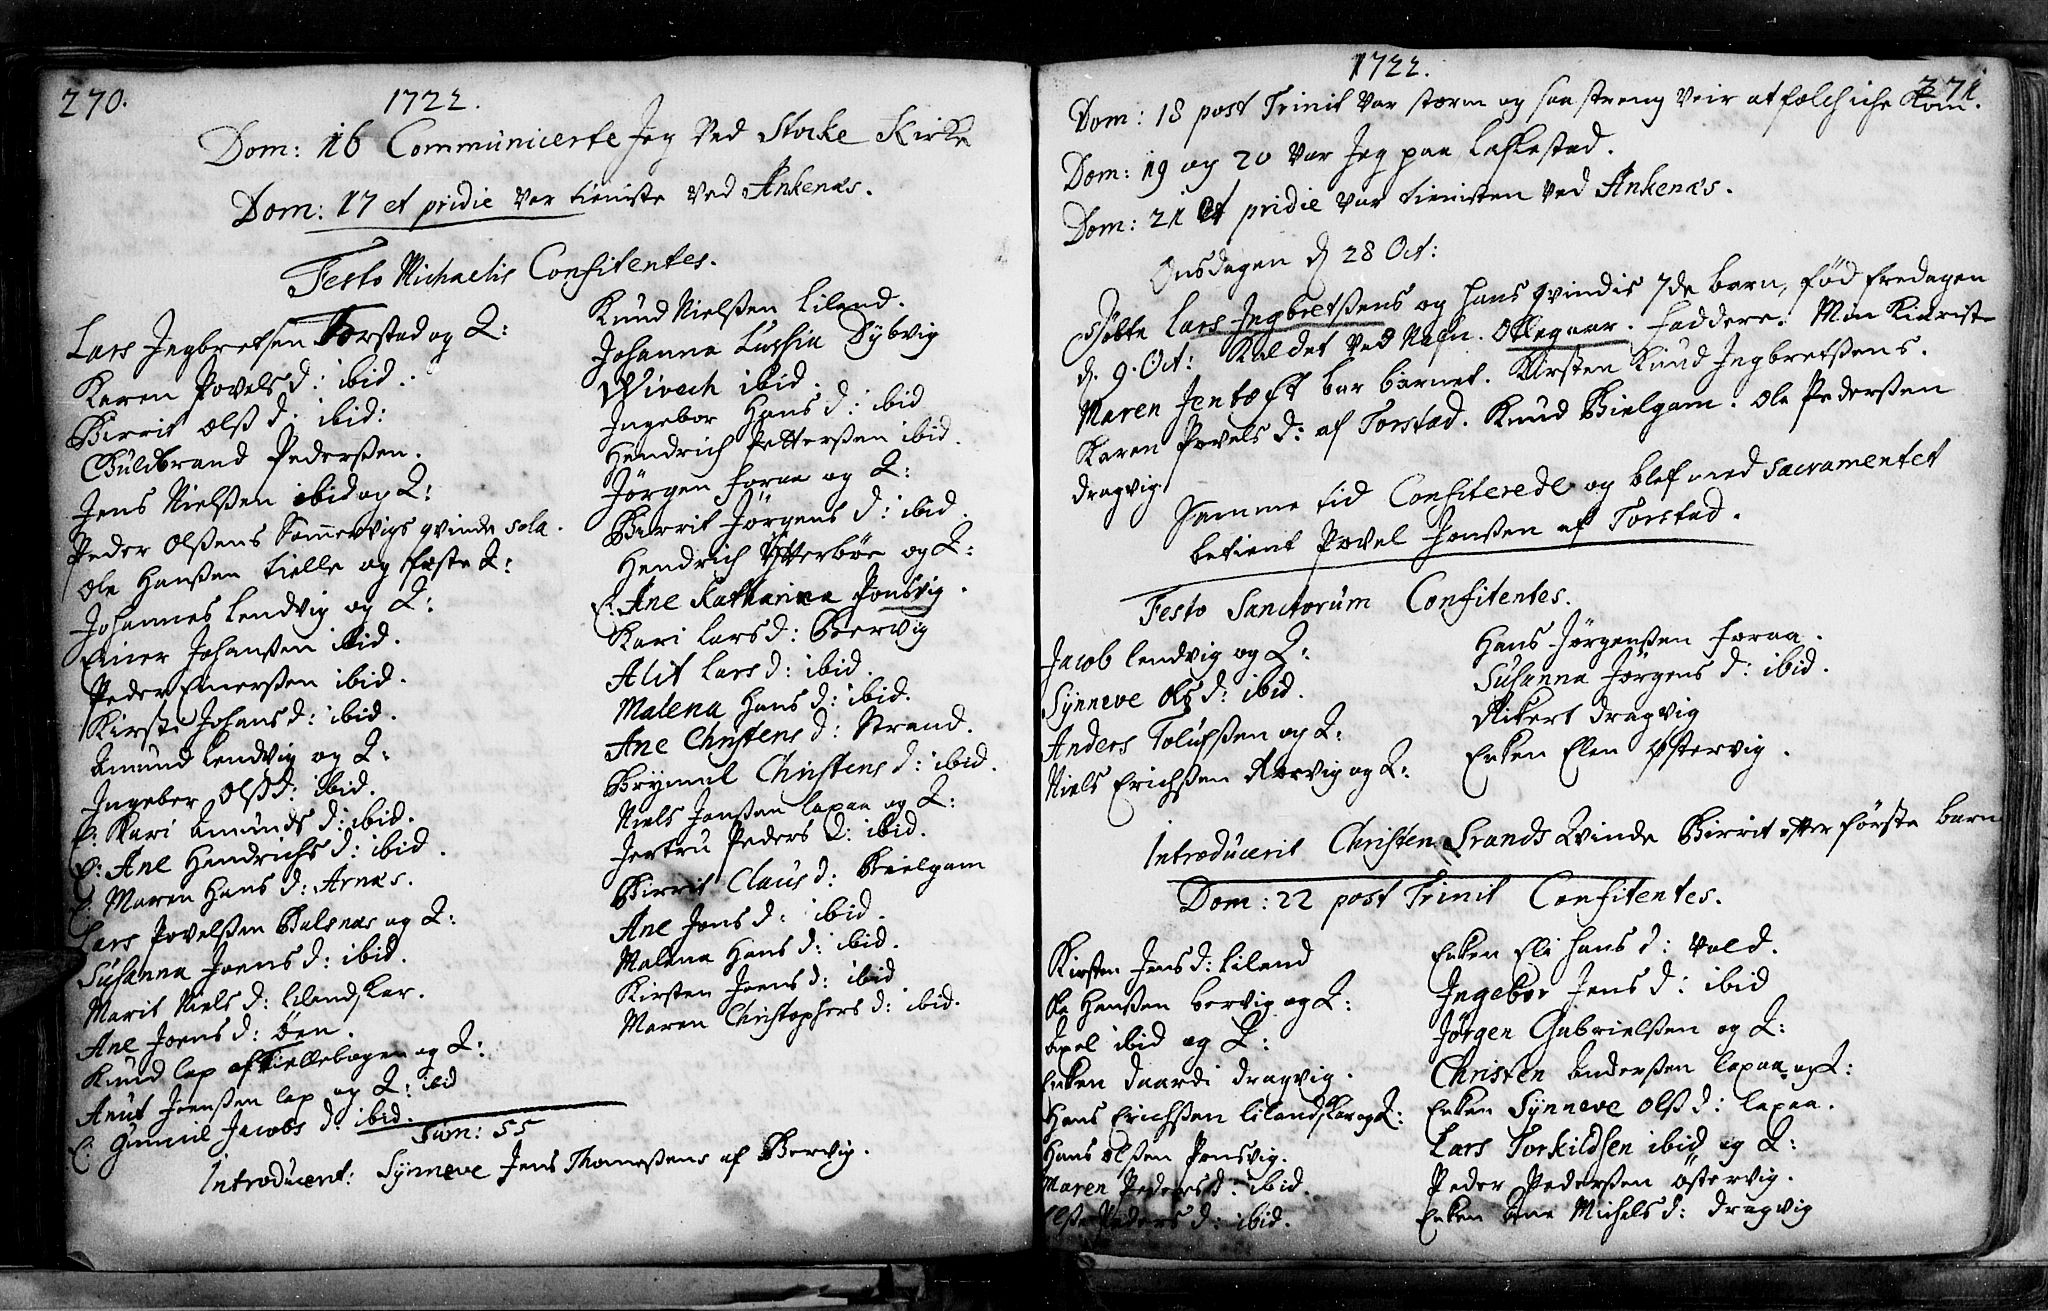 270.
1722.
Dom: 16 Communicerte Jeg Ved Stocke Kirke
Dom: 17 et pridie Var tieniste Ved Ankenæs.
Festo Michaelis Confitentes.
Lars Jngbretsen Torstad og Q:
Karen Povels d: ibid.
Birrit Olss d: ibid:
Guldbrand Pederssen.
Jens Nielssen ibid og Q:
Peder Olssens Sommervigs qvinde sola.
Ole Hanssen Kielle og fæste Q:
Johannes Lendvig og Q:
Einer Johanssen ibid.
Peder Einerssen ibid.
Kirsti Johans d: ibid.
Amund Lendvig og Q:
Jngeber Olss d: ibid.
E: Kari Amunds d: ibid.
E: Ane Hendrichs d: ibid.
E: Maren Hans d: Arnæs.
Lars Povelssen Balsnæs og Q:
Susanna Joens d: ibid.
Marit Niels d: Lilandskar.
Ane Joens d: Öen.
Knud lap af Kiellebogen og Q:
Anut Joenssen lap og Q: ibid
E: Gunnil Jacobs d: ibid.
Knud Nielssen Liland.
Johanna Lussia Dybvig
Wivech ibid.
Jngebor Hans d: ibid
Hendrich Petterssen ibid.
Jörgen Foraa og Q:
Birrit Jörgens d: ibid.
Hendrich Ytterböe og Q:
E: Ane Katharina Ponsvig.
Kari Lars d: Bervig
Alit Lars d: ibid.
Malena Hans d: ibid.
Ane Christens d: Strand.
Brynnil Christens d: ibid.
Niels Jonssen Lapaa og Q:
Jertru Peders d: ibid.
Birrit Claus d: Bielgam
Ane Jons d: ibid.
Malena Hans d: ibid.
Kirsten Joens d: ibid
Maren Christophers d: ibid.
Sum: 55
Introducert: Synneve Jens Thomessens af Bervig.
271
1722.
Dom: 18 post Trinit Var storm og saa streng Veir at folch iche Kom.
Dom: 19 og 20 Var Jeg paa Læskestad.
Dom: 21 et pridie Var tienisten Ved Ankenæs.
Onsdagen d 28 Oct:
Döbte Lars Jngbretssens og hans qvindis 7de barn, fød fredagen
d. 9. Oct: Kaldet Ved Nafn. Ollegaar. Faddere. Min Kieriste
Maren Jentoft bar barnet. Kirsten Knud Jngbretssens.
Karen Povels d: af Torstad. Knud Bielgam. Ole Pederssen
dragvig.
Samme tid Confiterede og blef med sacramentet
betient Povel Jonssen af Torstad.
Festo Sanctorum Confitentes.
Jacob Lendvig og Q:
Synneve Ols d: ibid.
Anders Tolufssen og Q:
Niels Erichssen Rorvig og Q:
Hans Jörgenssen Foraa.
Susanna Jörgens d: ibid.
Rikert dragvig
Enken Elen Østervig.
Introducerit Christen Strands Qvinde Birrit efter förste barn
Dom: 22 post Trinit Confitentes.
Kirsten Jens d: Liland
Ole Hanssen Bervig og Q:
Axel ibid og Q:
Enken Daardi dragvig.
Hans Erichssen Lilandskar og Q:
Hans Olssen Ponsvig.
Maren Peders d: ibid.
Peders d: ibid.
Enken Eli Hans d: Vold.
Jngebor Jens d: ibid
Jörgen Gabrielssen og Q:
Christen Anderssen Lapaa og Q:
Enken Synneve Olss d: Lapaa.
Lars Torkildsen ibid og Q:
Peder Pederssen Östervig.
Enken Ane Michels d: dragvig